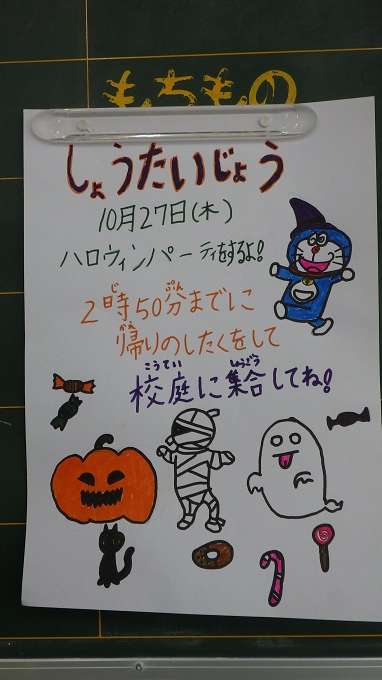 もちもの
しょうたいじょう
10月27日(木)
ハロウィンパーティをするよ!
2時50分までに
じ ぷん
帰りのしたくをして
かえ
校庭に集合してね!
こうてい しゅうごう